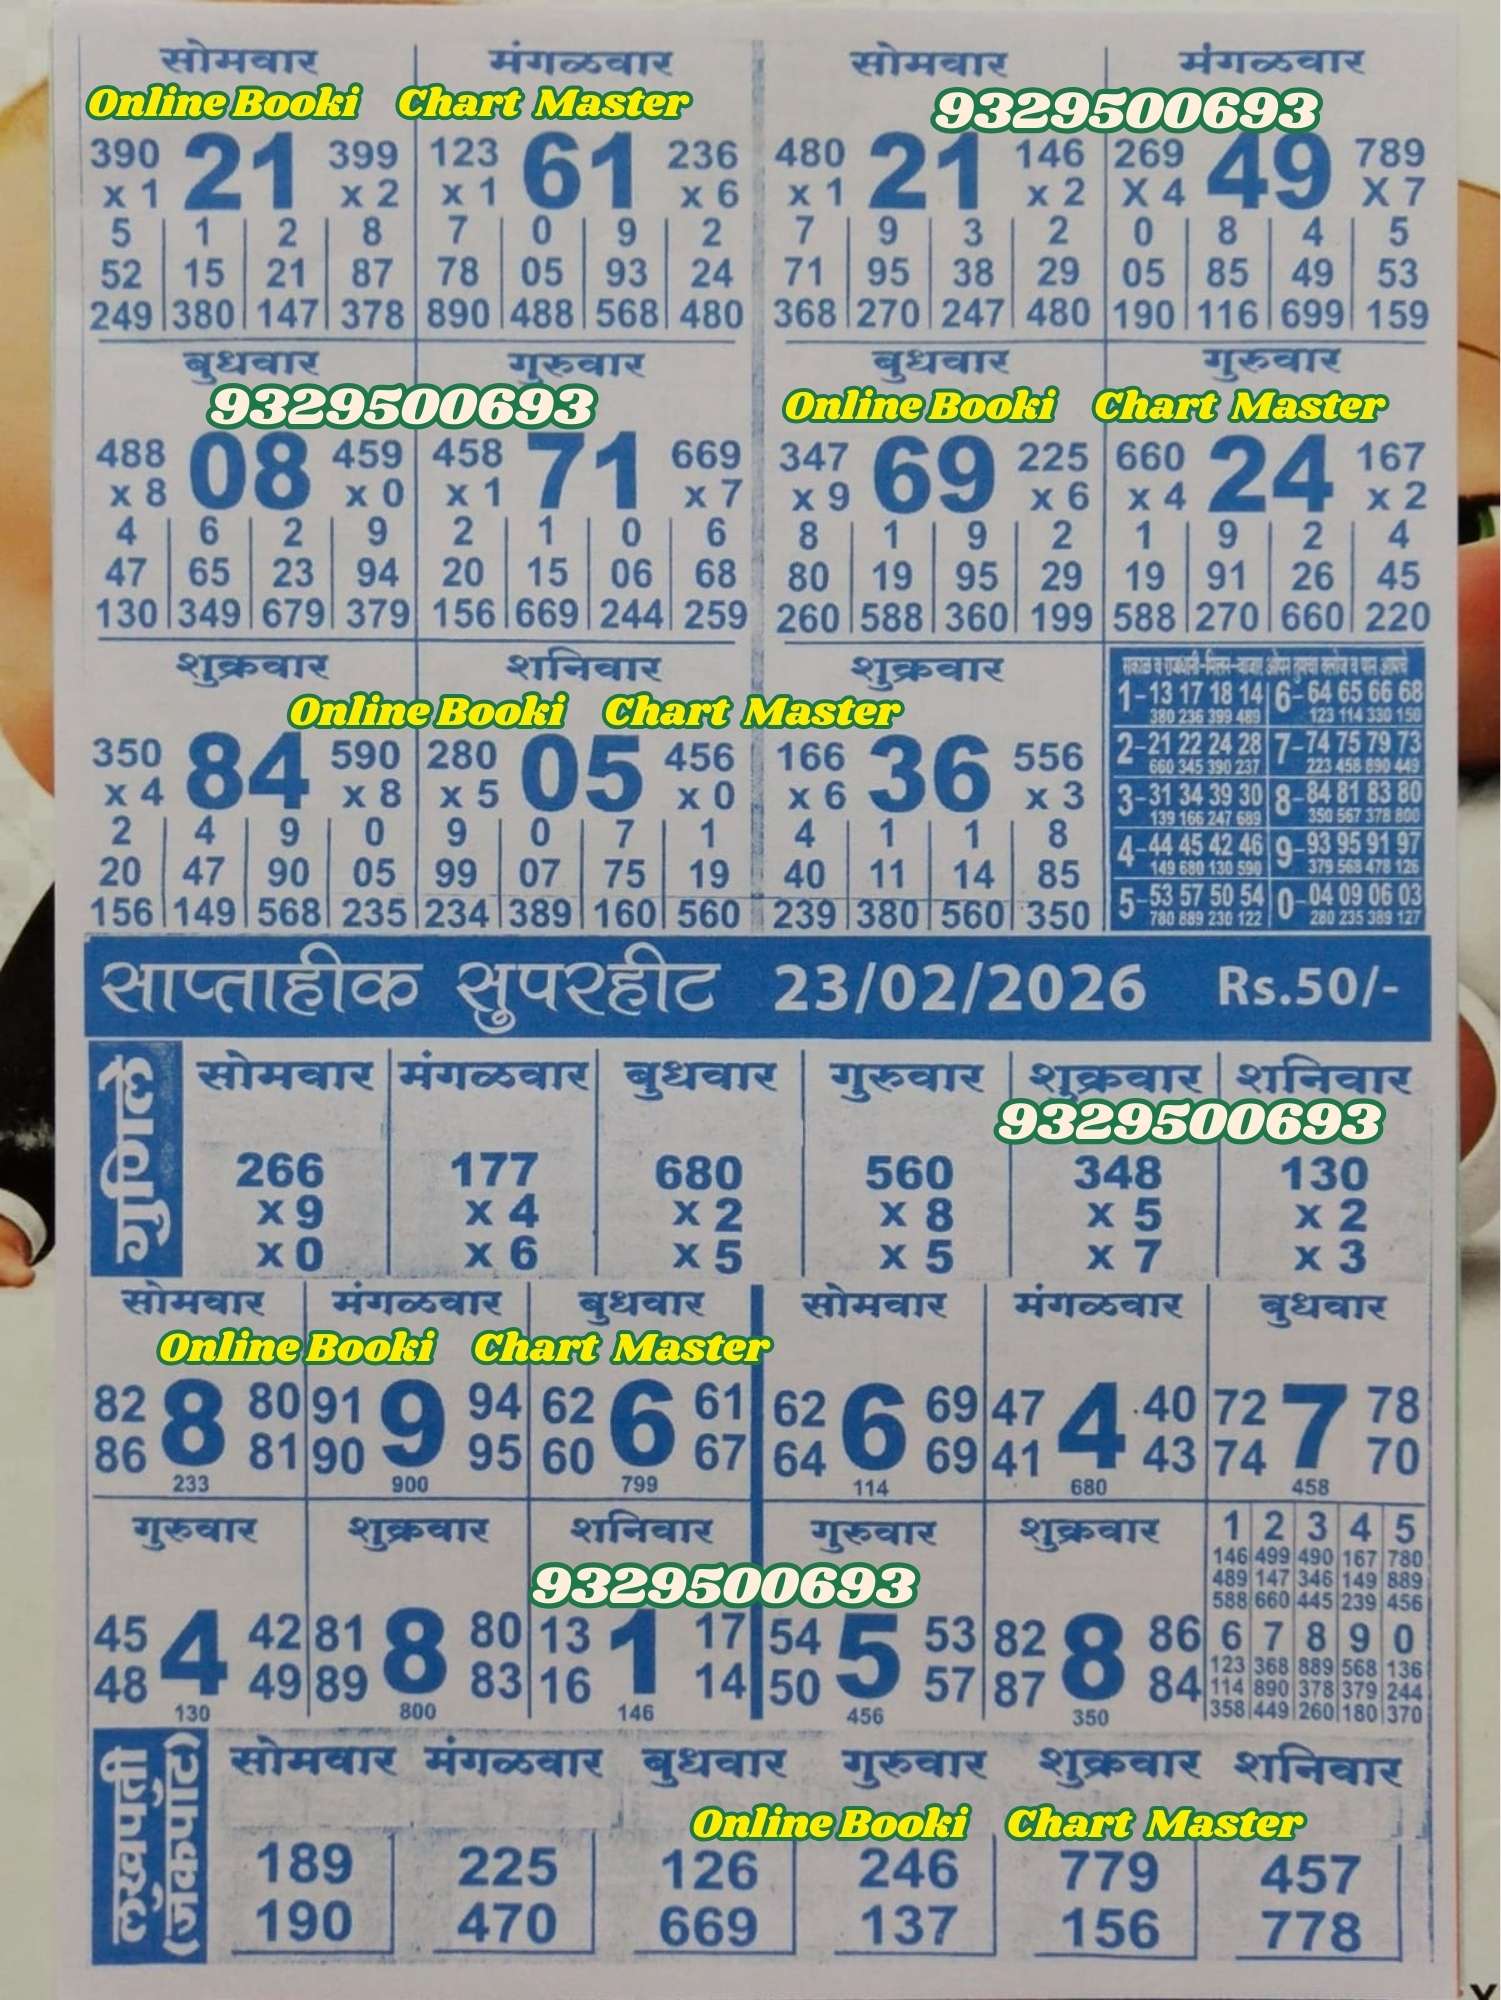 सोमवार मंगळवार सोमवार मंगळवार
Online Booki Chart Master 9329500693
390 21 399 123 61 236 480 21 146 269 49 789
x 1 x 2 x 1 x 6 x 1 x 2 X 4 X 7
5 1 2 8 7 0 9 2 7 9 3 2 0 8 4 5
52 15 21 87 78 05 93 24 71 95 38 29 05 85 49 53
249 380 147 378 890 488 568 480 368 270 247 480 190 116 699 159
बुधवार गुरुवार बुधवार गुरुवार
9329500693 Online Booki Chart Master
488 08 459 458 71 669 347 69 225 660 24 167
x 8 x 0 x 1 x 7 x 9 x 6 x 4 x 2
4 6 2 9 2 1 0 6 8 1 9 2 1 9 2 4
47 65 23 94 20 15 06 68 80 19 95 29 19 91 26 45
130 349 679 379 156 669 244 259 260 588 360 199 588 270 660 220
शुक्रवार शनिवार शुक्रवार
Online Booki Chart Master
350 84 590 280 05 456 166 36 556
x 4 x 8 x 5 x 0 x 6 x 3
2 4 9 0 9 0 7 1 4 1 1 8
20 47 90 05 99 07 75 19 40 11 14 85
156 149 568 235 234 389 160 560 239 380 560 350
1-13 17 18 14 6-64 65 66 68
380 236 399 489 123 114 330 150
2-21 22 24 28 7-74 75 79 73
660 345 390 237 223 458 890 449
3-31 34 39 30 8-84 81 83 80
139 166 247 689 350 567 378 800
4-44 45 42 46 9-93 95 91 97
149 680 130 590 379 568 478 126
5-53 57 50 54 0-04 09 06 03
780 889 230 122 280 235 389 127
साप्ताहीक सुपरहीट 23/02/2026 Rs.50/-
गुणिले
सोमवार मंगळवार बुधवार गुरुवार शुक्रवार शनिवार
9329500693
266 177 680 560 348 130
x 9 x 4 x 2 x 8 x 5 x 2
x 0 x 6 x 5 x 5 x 7 x 3
सोमवार मंगळवार बुधवार सोमवार मंगळवार बुधवार
Online Booki Chart Master
82 8 80 91 9 94 62 6 61 62 6 69 47 4 40 72 7 78
86 81 90 95 60 67 64 69 41 43 74 70
233 900 799 114 680 458
गुरुवार शुक्रवार शनिवार गुरुवार शुक्रवार
9329500693
45 4 42 81 8 80 13 1 17 54 5 53 82 8 86
48 49 89 83 16 14 50 57 87 84
130 800 146 456 350
1 2 3 4 5
146 499 490 167 780
489 147 346 149 889
588 660 445 239 456
6 7 8 9 0
123 368 889 568 136
114 890 378 379 244
358 449 260 180 370
लखपती
(जॅकपॉट)
सोमवार मंगळवार बुधवार गुरुवार शुक्रवार शनिवार
Online Booki Chart Master
189 225 126 246 779 457
190 470 669 137 156 778